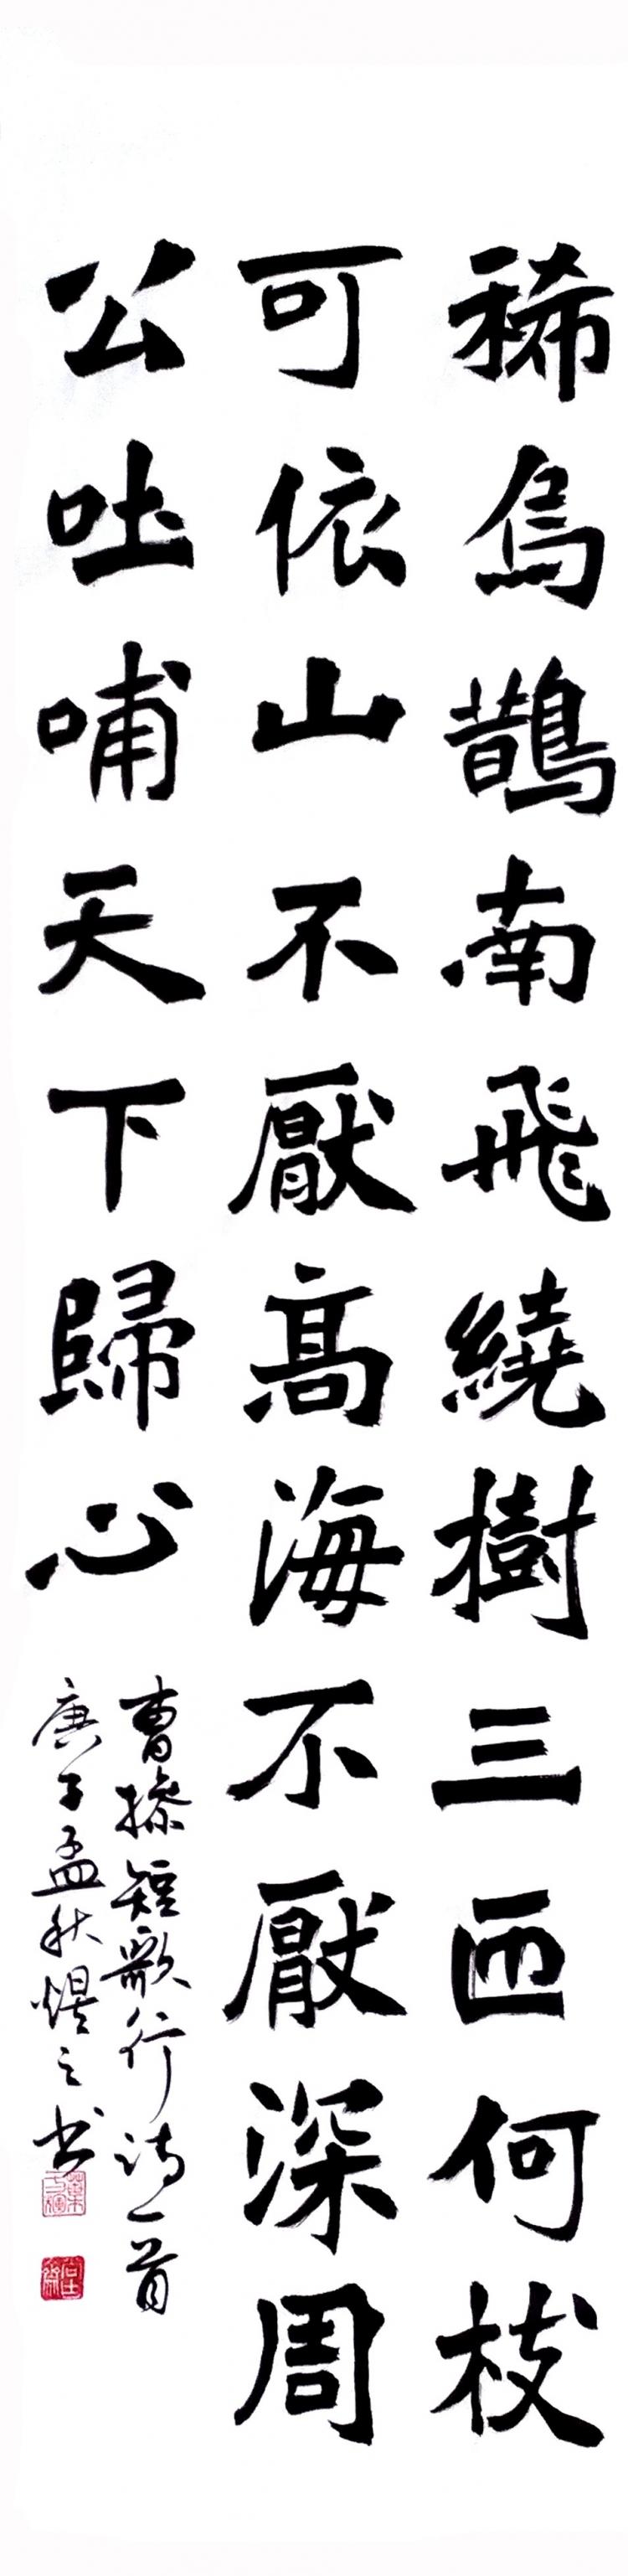 稀烏鵲南飛繞樹三匝何枝
可依山不厭高海不厭深周
公吐哺天下歸心
曹操短歌行詩一首
庚子孟秋煜之书